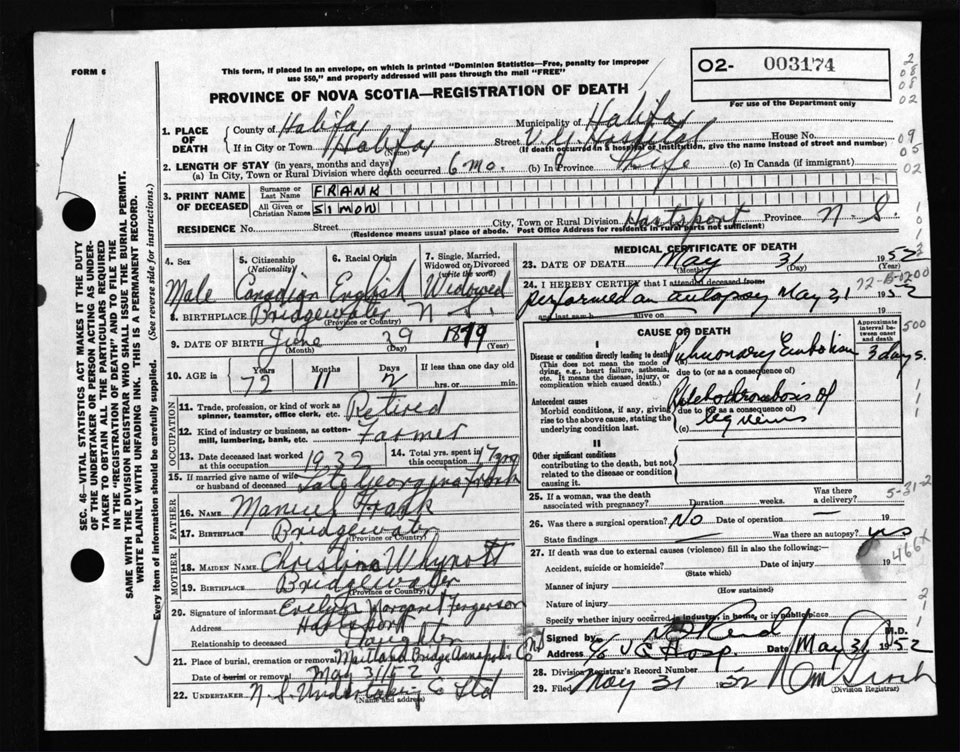 FORM 6
This form, if placed in an envelope, on which is printed "Dominion Statistics—Free, penalty for improper
use $50," and properly addressed will pass through the mail "FREE"
O2- 003174
For use of the Department only
PROVINCE OF NOVA SCOTIA—REGISTRATION OF DEATH
1. PLACE OF DEATH
County of Halifax Municipality of Halifax
If in City or Town Halifax (Name) Street V.G. Hospital House No.
(If death occurred in a hospital or institution, give the name instead of street and number)
2. LENGTH OF STAY (in years, months and days)
(a) In City, Town or Rural Division where death occurred 6 mo. (b) In Province Life (c) In Canada (if immigrant)
3. PRINT NAME OF DECEASED
Surname or Last Name FRANK
All Given or Christian Names SIMON
RESIDENCE No. Street City, Town or Rural Division Hantsport Province N.S.
(Residence means usual place of abode. Post Office Address for residents in rural parts not sufficient)
4. Sex Male
5. Citizenship (Nationality) Canadian
6. Racial Origin English
7. Single, Married, Widowed or Divorced (write the word) Widowed
8. BIRTHPLACE Bridgewater N.S.
(Province or Country)
9. DATE OF BIRTH June (Month) 29 (Day) 1879 (Year)
10. AGE Years 72 Months 11 Days 2 If less than one day old hrs. or min.
OCCUPATION
11. Trade, profession, or kind of work as spinner, teamster, office clerk, etc. Retired
12. Kind of industry or business, as cotton-mill, lumbering, bank, etc. Farmer
13. Date deceased last worked at this occupation 1932
14. Total yrs. spent in this occupation
15. If married give name of wife or husband of deceased Late Georgina Frank
FATHER
16. NAME Manus Frank
17. BIRTHPLACE Bridgewater
(Province or Country)
MOTHER
18. MAIDEN NAME Christina Whynott
19. BIRTHPLACE Bridgewater
(Province or Country)
20. Signature of informant Evelyn Margaret Fergerson
Address Hantsport
Relationship to deceased Daughter
21. Place of burial, cremation or removal Maitland Bridge Annapolis Co NS
Date of burial or removal May 31/52
22. UNDERTAKER N S Undertaking Co Ltd
(Name and address)
MEDICAL CERTIFICATE OF DEATH
23. DATE OF DEATH May (Month) 31 (Day) 1952 (Year)
24. I HEREBY CERTIFY that I attended deceased from
performed an autopsy May 31 1952
and last saw h alive on
CAUSE OF DEATH
Approximate interval between onset and death
I
Disease or condition directly leading to death Pulmonary Embolism 3 days.
(This does not mean the mode of dying, e.g., heart failure, asthenia, etc. It means the disease, injury, or complication which caused death.)
due to (or as a consequence of)
Antecedent causes Phlebothrombosis of
Morbid conditions, if any, giving rise to the above cause, stating the underlying condition last.
due to (or as a consequence of)
leg veins
(c)
II
Other significant conditions
contributing to the death, but not related to the disease or condition causing it.
25. If a woman, was the death associated with pregnancy? Duration weeks. Was there a delivery?
5-31-2
26. Was there a surgical operation? No Date of operation 19
State findings Was there an autopsy? yes
27. If death was due to external causes (violence) fill in also the following:
Accident, suicide or homicide? (State which) Date of injury 19
466X
Manner of injury (How sustained)
Nature of injury
Specify whether injury occurred in industry, in home, or in public place
Signed by M.D.
Address c/o V G Hosp. Date May 31 1952
28. Division Registrar's Record Number
29. Filed May 31 1952
(Division Registrar)
SEC. 46—VITAL STATISTICS ACT MAKES IT THE DUTY
OF THE UNDERTAKER OR PERSON ACTING AS UNDER-
TAKER TO OBTAIN ALL THE PARTICULARS REQUIRED
IN THE "REGISTRATION OF DEATH" AND TO FILE THE
SAME WITH THE DIVISION REGISTRAR WHO SHALL ISSUE THE BURIAL PERMIT.
WRITE PLAINLY WITH UNFADING INK. THIS IS A PERMANENT RECORD.
Every item of information should be carefully supplied. (See reverse side for instructions.)